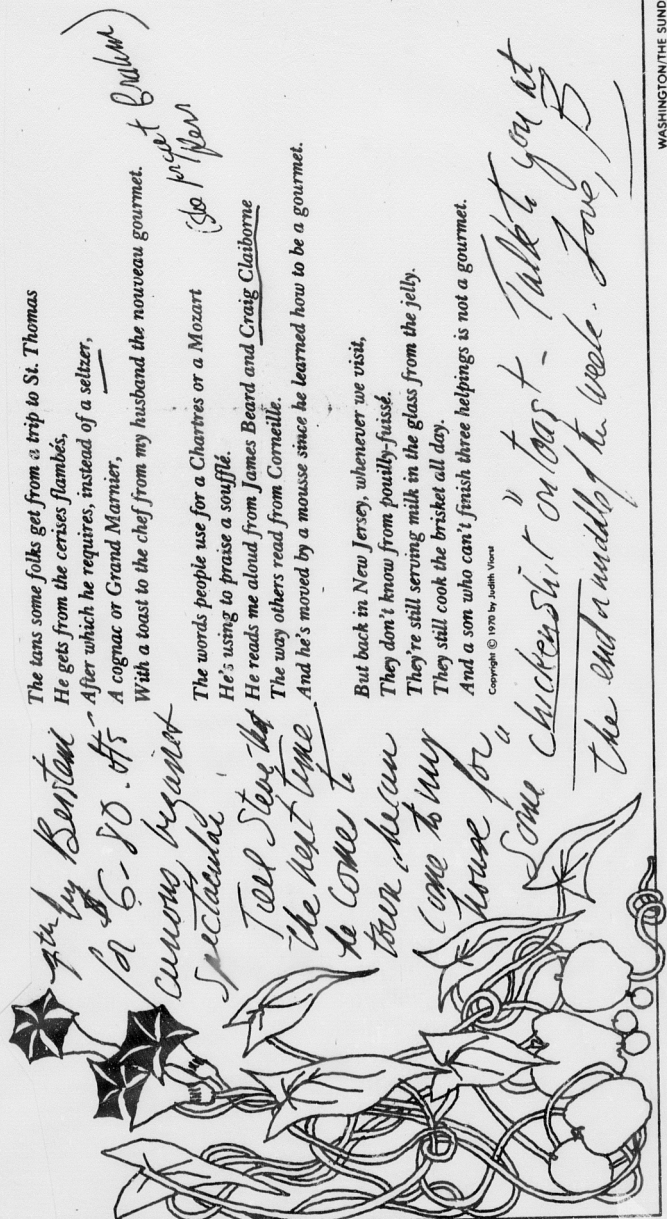 The tans some folks get from a trip to St. Thomas
He gets from the cerises flambés,
After which he requires, instead of a seltzer,
A cognac or Grand Marnier,
With a toast to the chef from my husband the nouveau gourmet.
The words people use for a Chartres or a Mozart
He's using to praise a soufflé.
He reads me aloud from James Beard and Craig Claiborne
The way others read from Corneille.
And he's moved by a mousse since he learned how to be a gourmet.
But back in New Jersey, whenever we visit,
They don't know from pouilly-fuissé.
They're still serving milk in the glass from the jelly.
They still cook the brisket all day.
And a son who can't finish three helpings is not a gourmet.
Copyright © 1970 by Judith Viorst
7th by
for $6-80.
curious, against
spectacular
Tell Steve that
the next time
he comes to
town he can
come to my
house for
some "chickenshit" on toast - Talk to you at
the end or middle of the week. Love, B
WASHINGTON/THE SUND